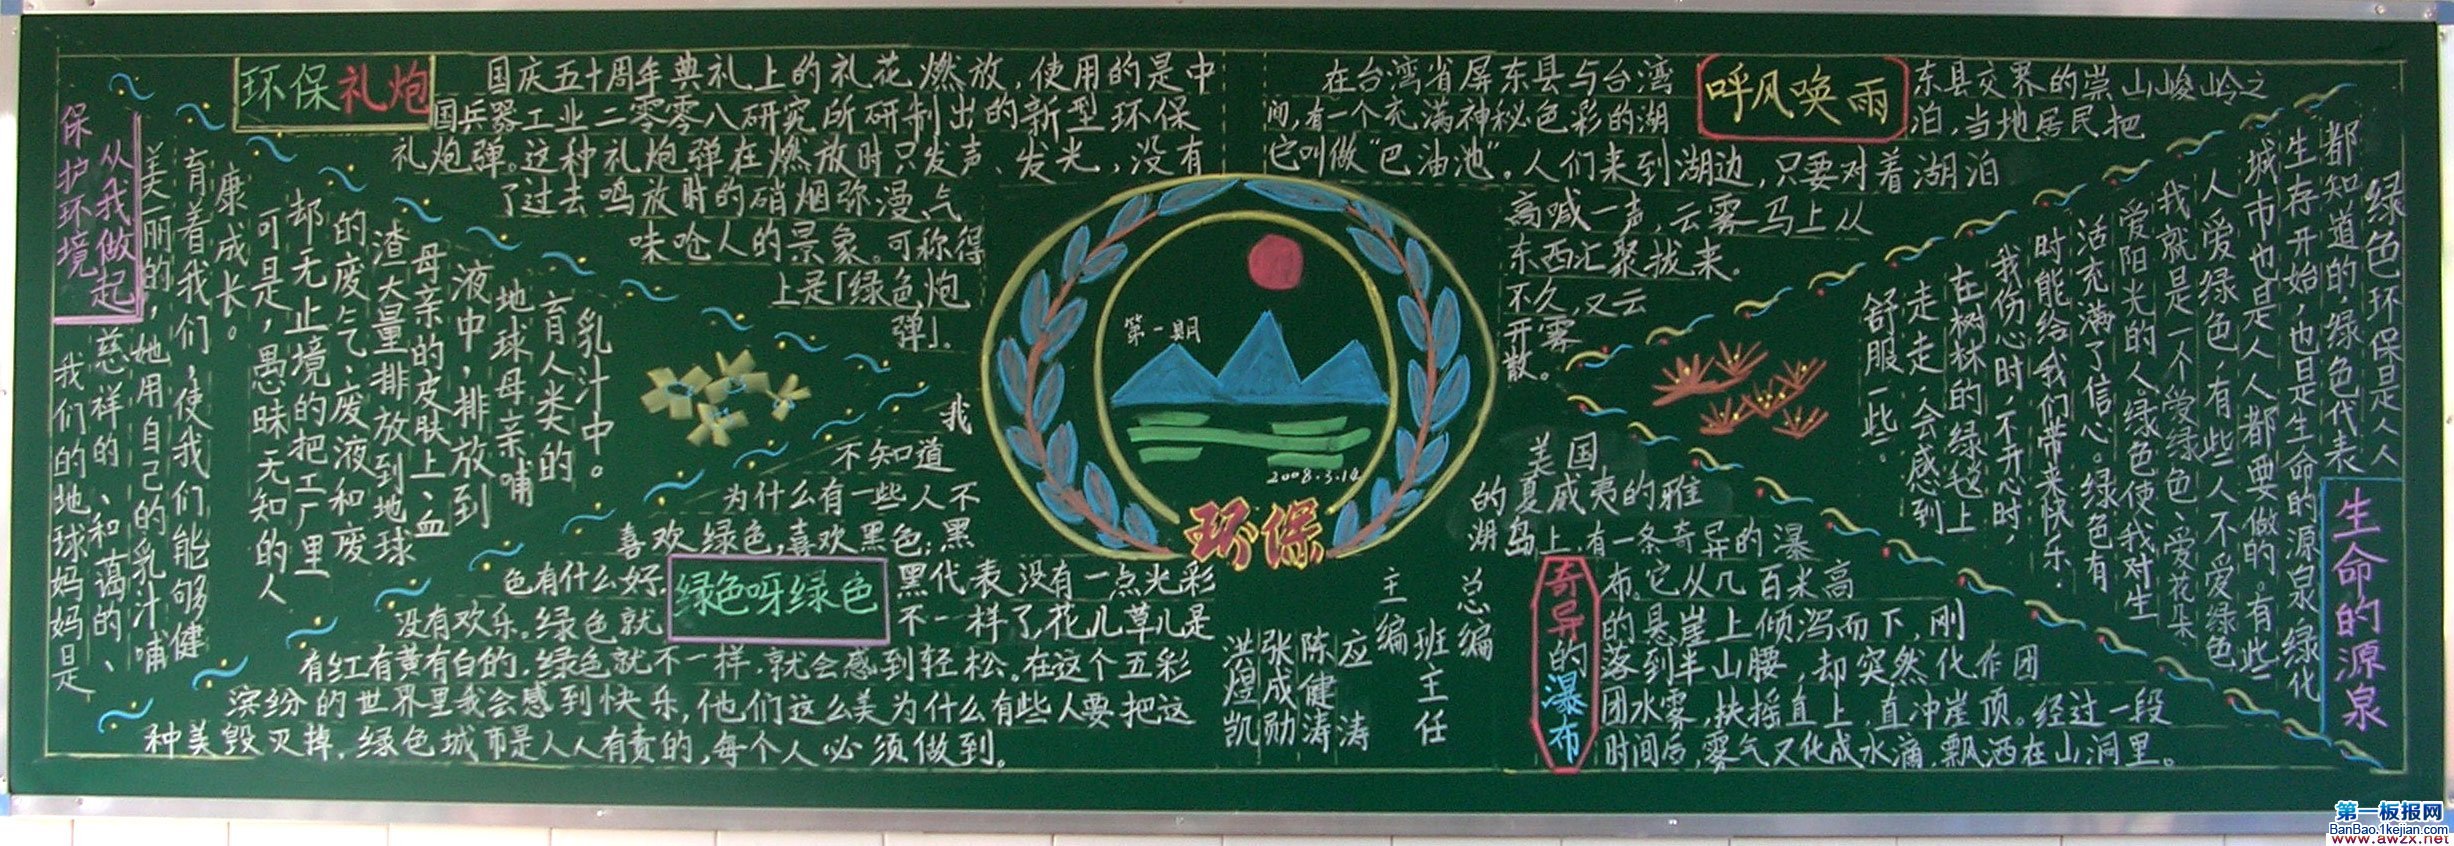 环保礼炮
国庆五十周年典礼上的礼花燃放,使用的是中
国兵器工业二零零八研究所研制出的新型环保
礼炮弹。这种礼炮弹在燃放时只发声、发光,没有
了过去鸣放时的硝烟弥漫、气
味呛人的景象。可称得
上是「绿色炮
弹」.
保护环境
从我做起
我们的地球妈妈是
慈祥的、和蔼的、
美丽的,她用自己的乳汁哺
育着我们,使我们能够健
康成长。
可是,愚昧无知的人
却无止境的把工厂里
的废气、废液和废
渣大量排放到地球
母亲的皮肤上、血
液中,排放到
地球母亲哺
育人类的
乳汁中。
绿色呀绿色
我
不知道
为什么有一些人不
喜欢绿色,喜欢黑色;黑
色有什么好.黑代表没有一点光彩
没有欢乐.绿色就不一样了,花儿草儿是
有红有黄有白的.绿色就不一样,就会感到轻松。在这个五彩
滨纷的世界里我会感到快乐,他们这么美为什么有些人要把这
种美毁灭掉.绿色城市是人人有责的,每个人必须做到。
第一期
2008.3.14
环保
总编
班主任
主编
应涛
陈健涛
张成勋
洪煜凯
呼风唤雨
在台湾省屏东县与台湾东县交界的崇山峻岭之
间,有一个充满神秘色彩的湖泊,当地居民把
它叫做“巴油池”。人们来到湖边,只要对着湖泊
高喊一声,云雾马上从
东西汇聚拢来。
不久,又云
开雾
散。
奇异的瀑布
美国
的夏威夷的雅
湖岛上,有一条奇异的瀑
布.它从几百米高
的悬崖上倾泻而下,刚
落到半山腰,却突然化作团
团水雾,扶摇直上,直冲崖顶。经过一段
时间后,雾气又化成水滴,飘洒在山洞里。
生命的源泉
绿色环保是人人
都知道的,绿色代表
生存开始,也是生命的源泉,绿化
城市也是人人都要做的。有些
人爱绿色,有些人不爱绿色
我就是一个爱绿色、爱花朵
爱阳光的人.绿色使我对生
活充满了信心.绿色有
时能给我们带来快乐.
我伤心时,不开心时,
在树林的绿毯上
走走,会感到
舒服一些。
第一板报网
BanBao.1kejian.com
www.aw2x.net